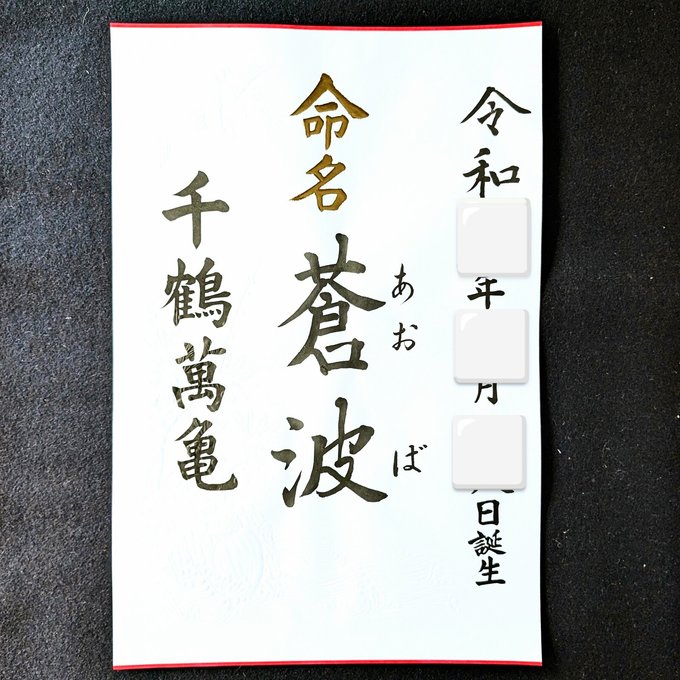 令和年月日誕生
命名
蒼波
あおば
千鶴萬亀